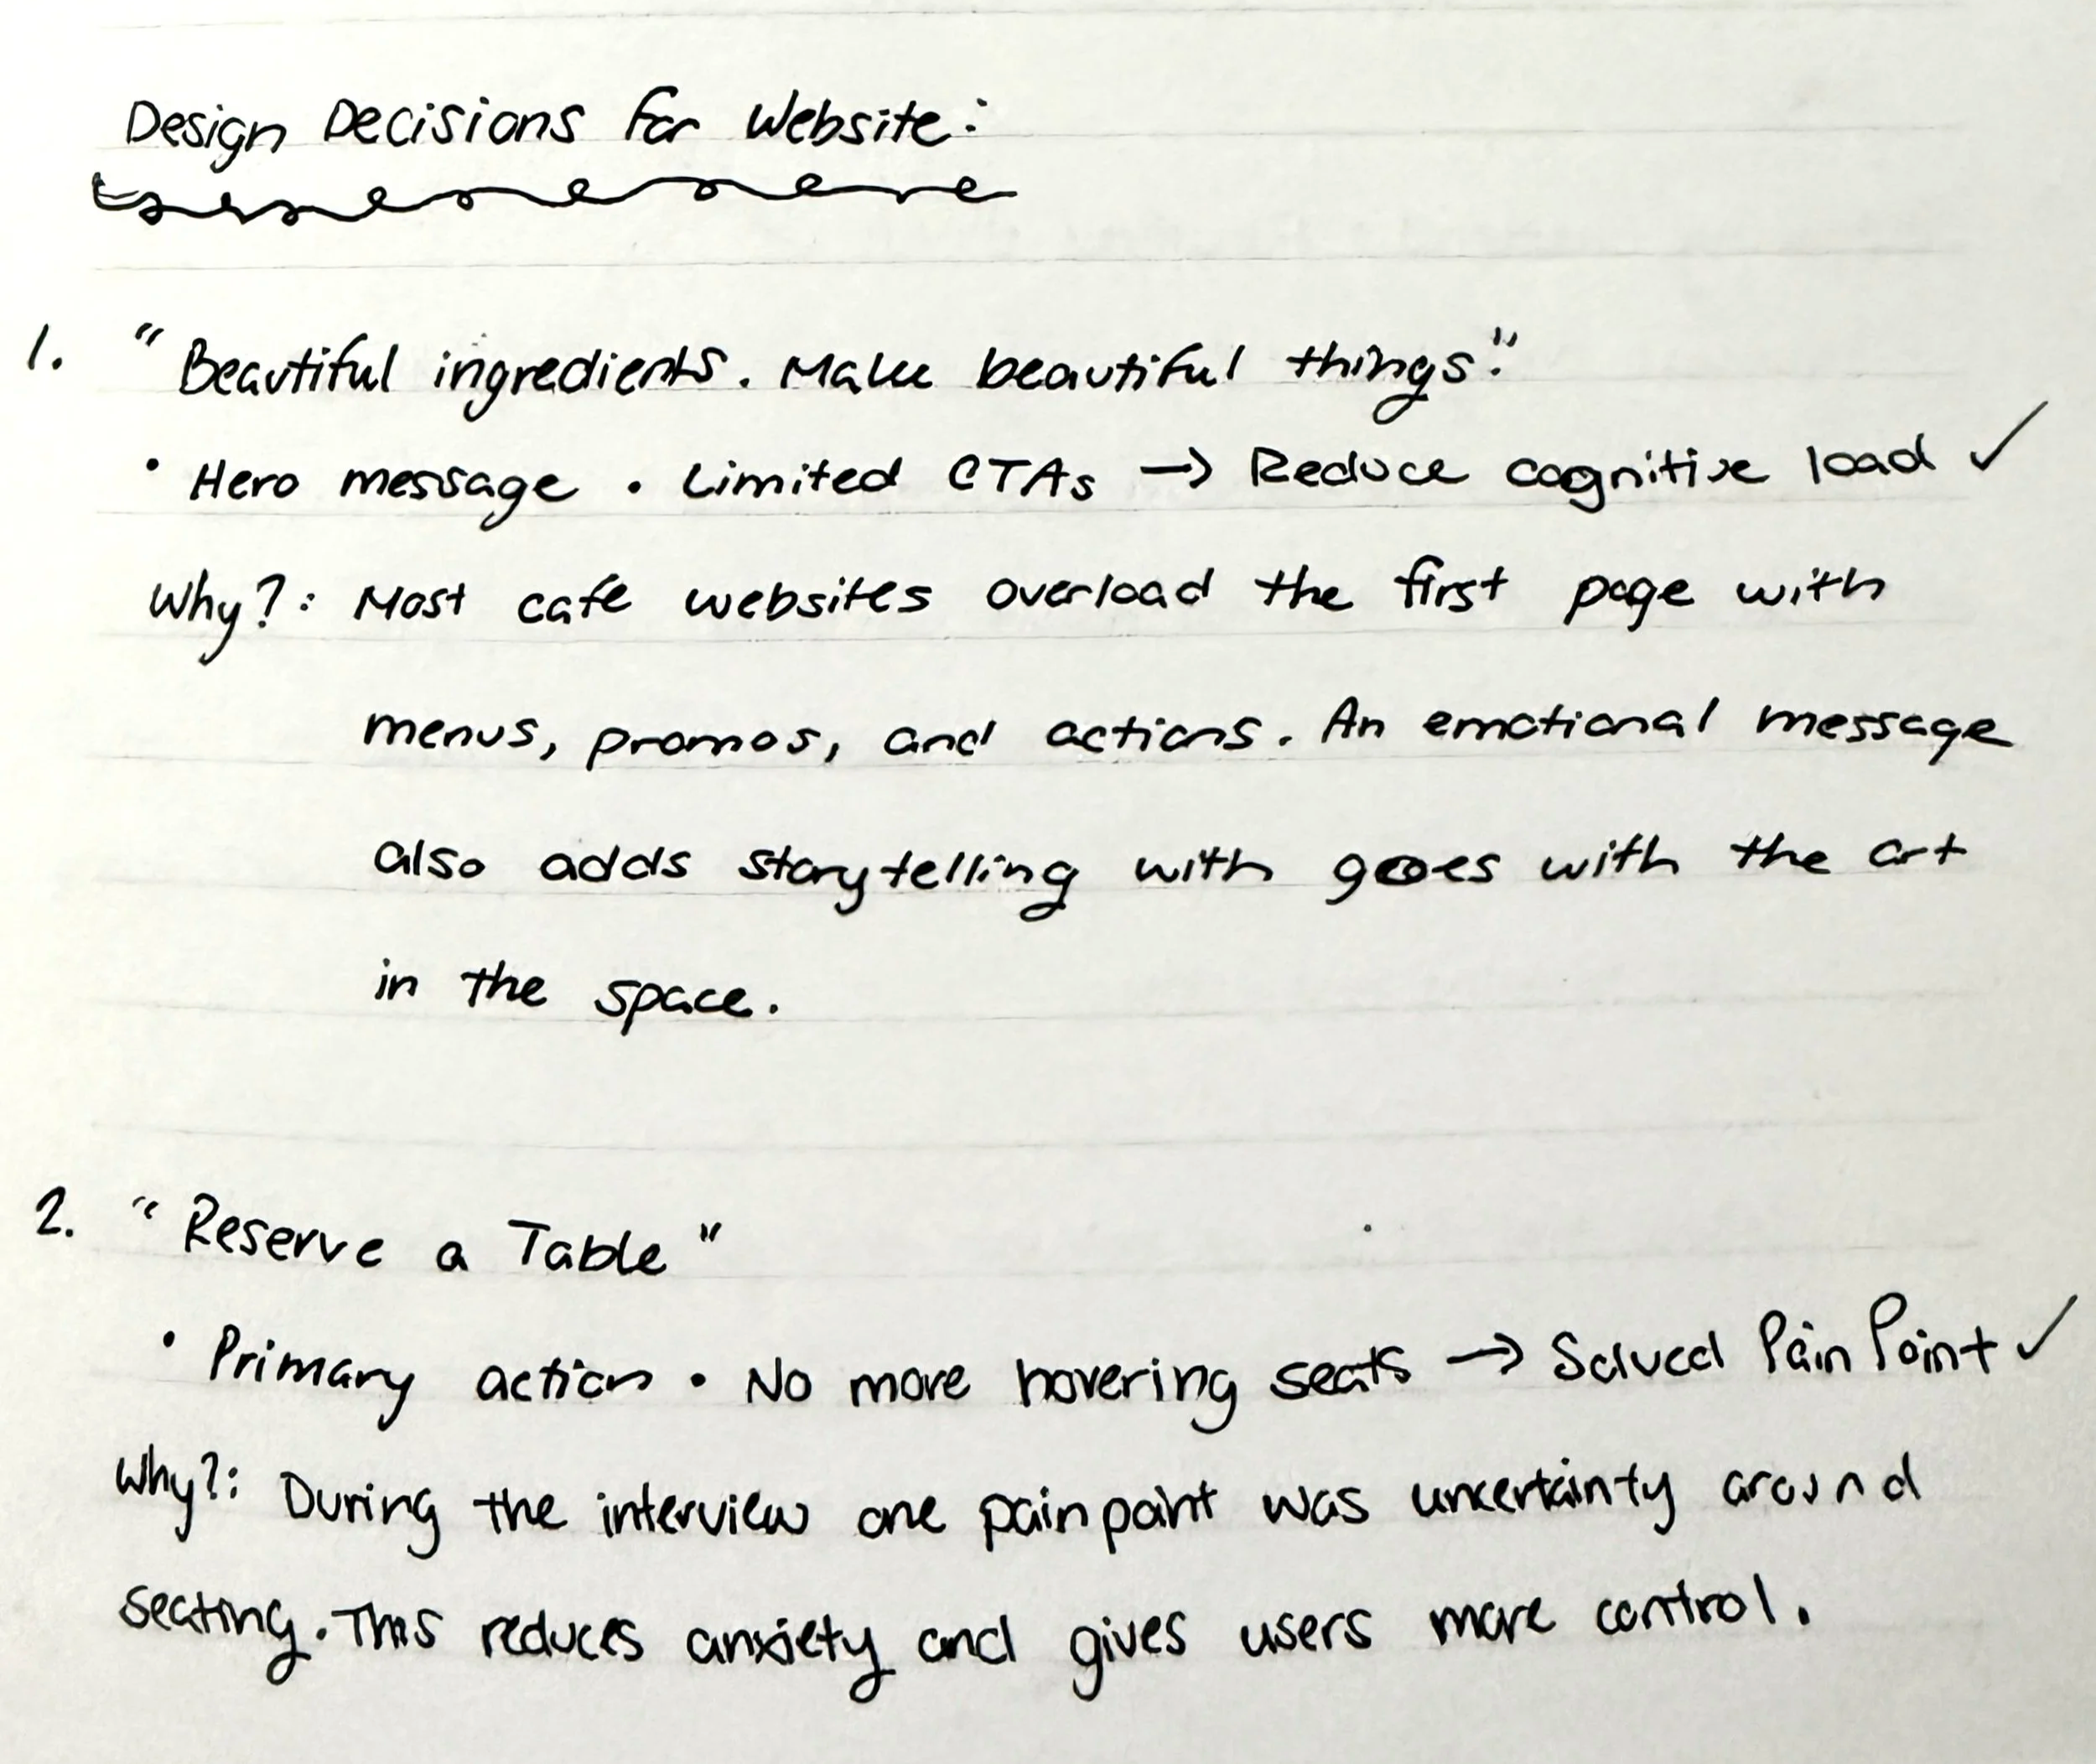 Design Decisions for Website:
1. "Beautiful ingredients. Make beautiful things."
• Hero message • Limited CTAs → Reduce cognitive load ✓
Why?: Most cafe websites overload the first page with
menus, promos, and actions. An emotional message
also adds storytelling with goes with the art
in the space.
2. "Reserve a Table"
• Primary action • No more hovering seats → Solved Pain Point ✓
Why?: During the interview one pain point was uncertainty around
seating. This reduces anxiety and gives users more control.